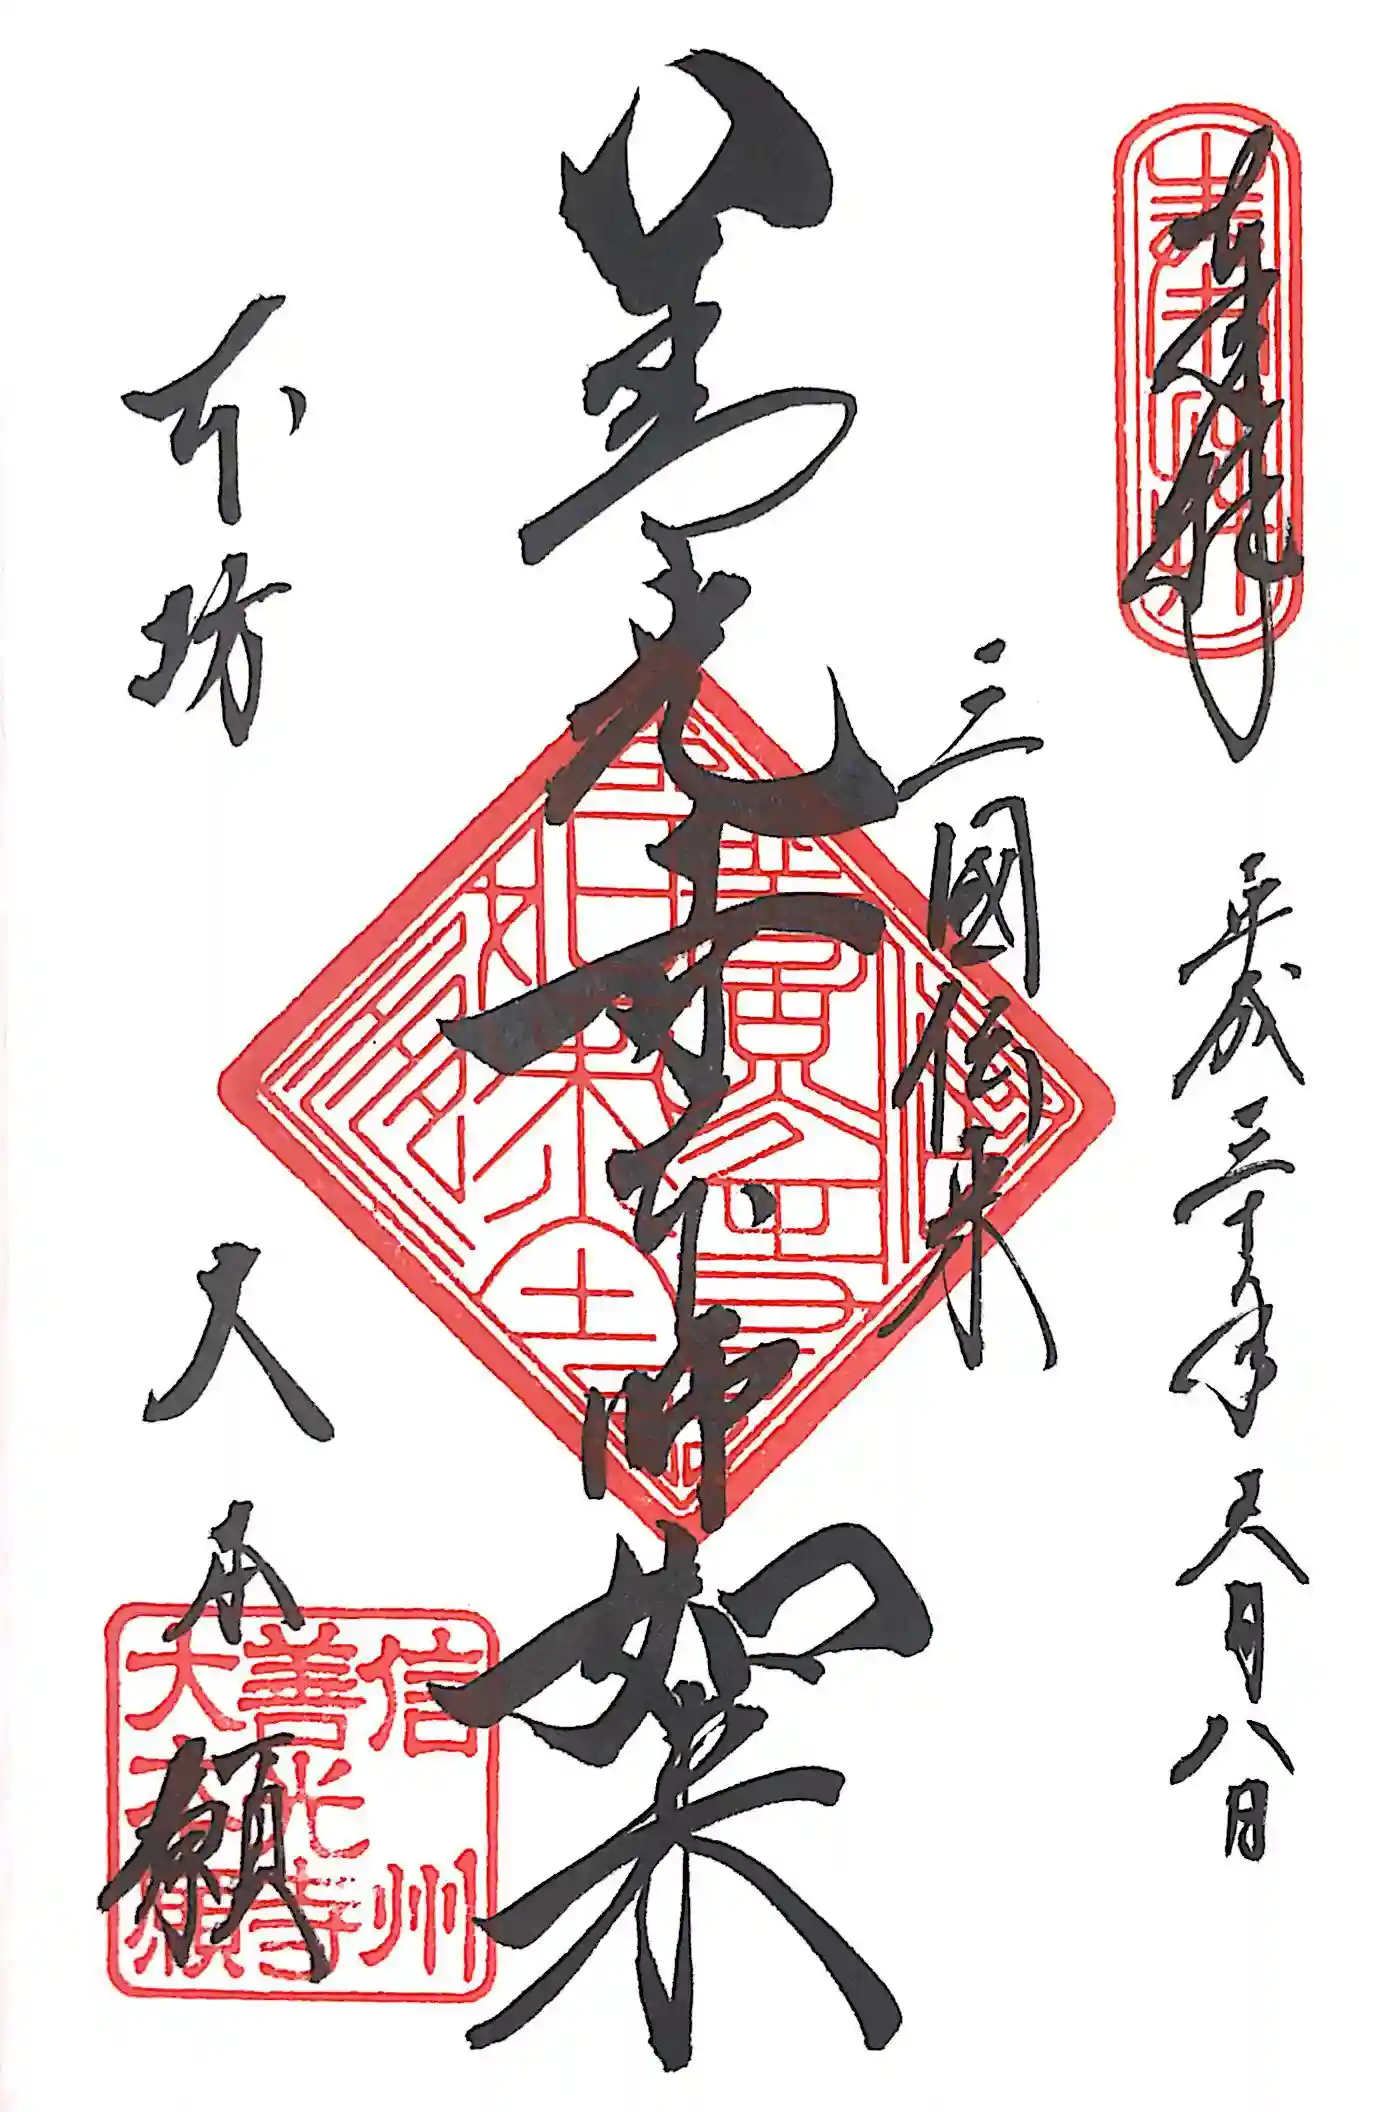 奉拝
平成三十年六月八日
三國傳来
善光寺本師如来
本坊
大本願
信州
善光寺
大本願